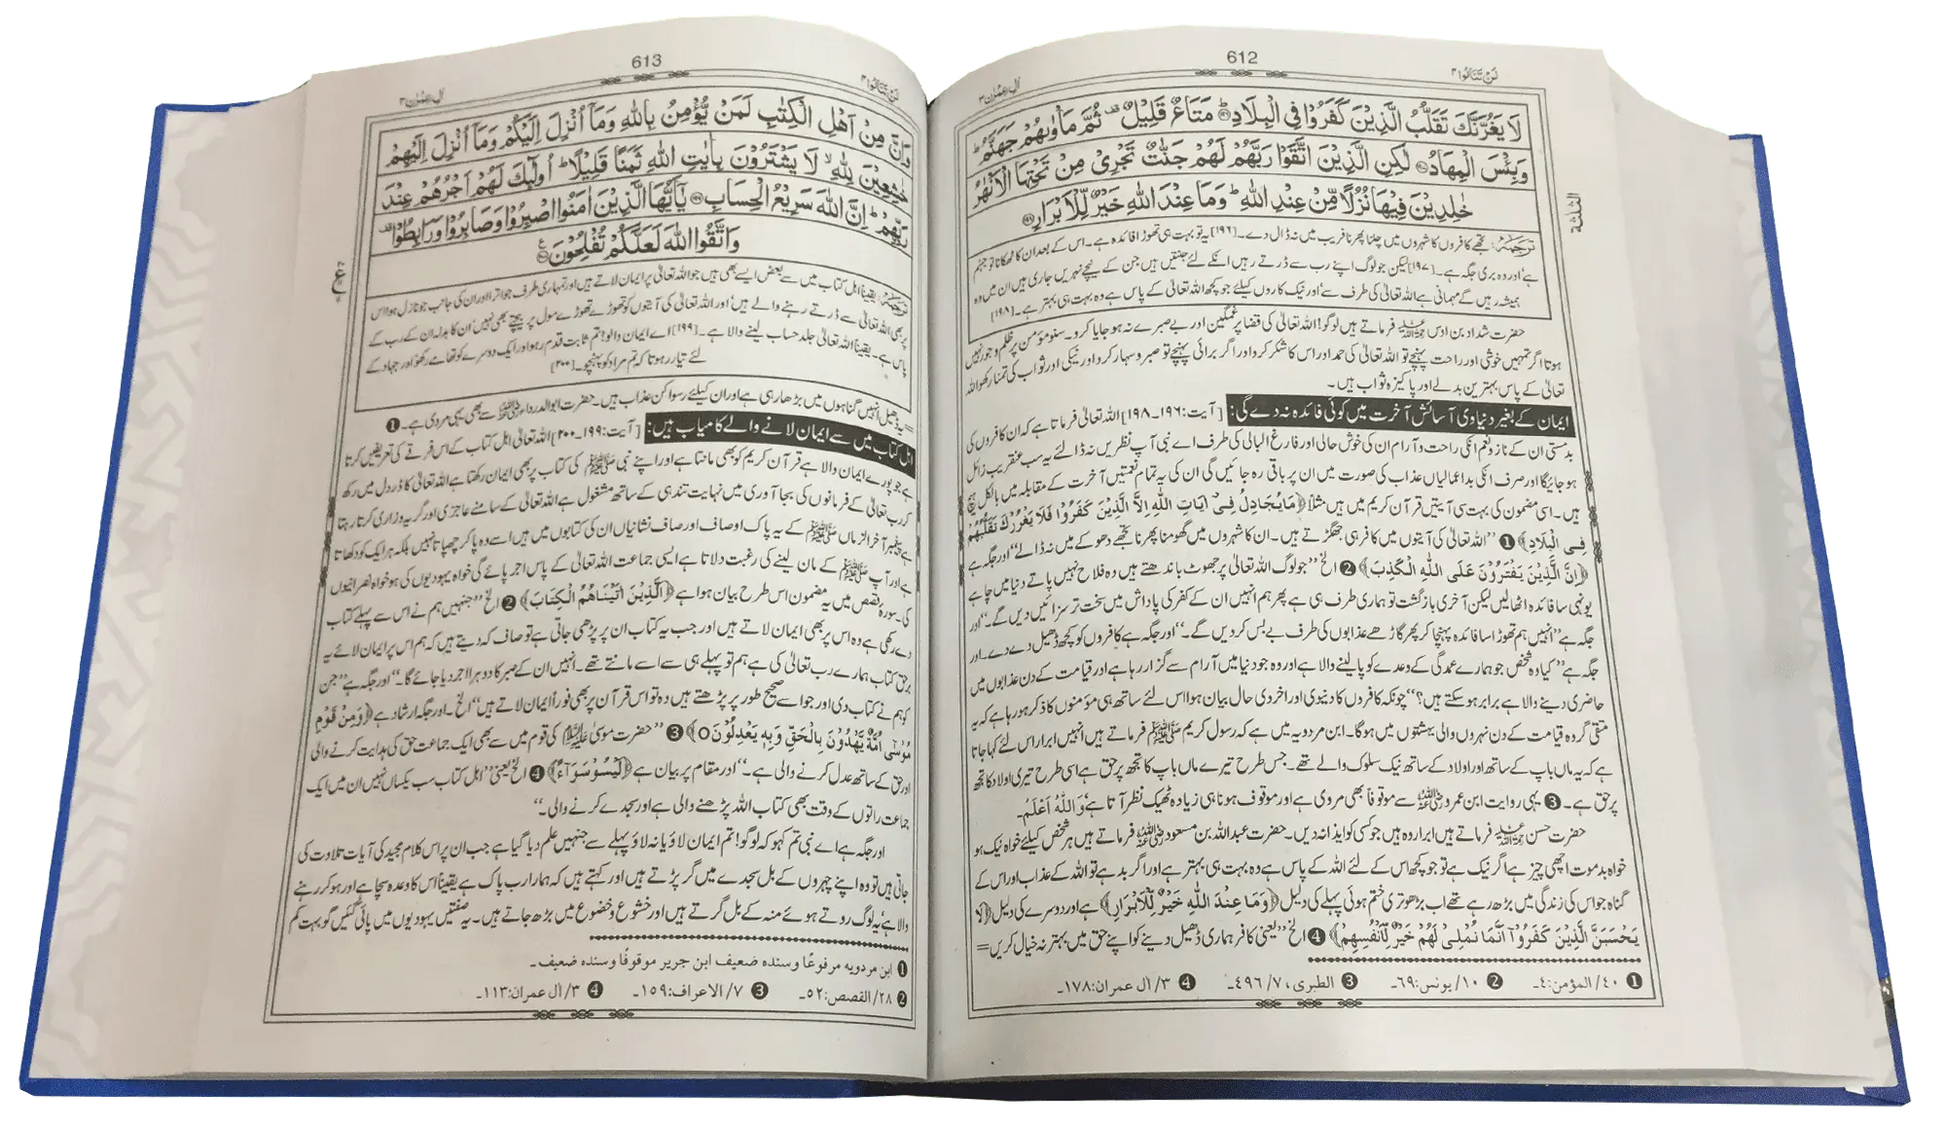 612
لَنْ تَنَالُوا ۴
اٰلِ عِمْرٰن ۳
لَا يَغُرَّنَّكَ تَقَلُّبُ الَّذِيْنَ كَفَرُوْا فِي الْبِلَادِ ۝ مَتَاعٌ قَلِيْلٌ ۫ ثُمَّ مَاْوٰىهُمْ جَهَنَّمُ ؕ
وَبِئْسَ الْمِهَادُ ۝ لٰكِنِ الَّذِيْنَ اتَّقَوْا رَبَّهُمْ لَهُمْ جَنّٰتٌ تَجْرِيْ مِنْ تَحْتِهَا الْاَنْهٰرُ
خٰلِدِيْنَ فِيْهَا نُزُلًا مِّنْ عِنْدِ اللّٰهِ ؕ وَمَا عِنْدَ اللّٰهِ خَيْرٌ لِّلْاَبْرَارِ ۝
الثلثة
ترجمہ: تجھے کافروں کا شہروں میں چلنا پھرنا فریب میں نہ ڈال دے۔[۱۹۶] یہ تو بہت ہی تھوڑا فائدہ ہے۔ اس کے بعد ان کا ٹھکانا تو جہنم
ہے اور وہ بری جگہ ہے۔[۱۹۷] لیکن جو لوگ اپنے رب سے ڈرتے رہیں انکے لئے جنتیں ہیں جن کے نیچے نہریں جاری ہیں ان میں وہ
ہمیشہ رہیں گے مہمانی ہے اللہ تعالیٰ کی طرف سے اور نیک کاروں کیلئے جو کچھ اللہ تعالیٰ کے پاس ہے وہ بہت ہی بہتر ہے۔[۱۹۸]
حضرت شداد بن اوس ؓ فرماتے ہیں لوگو! اللہ تعالیٰ کی قضا پر غمگین اور بے صبرے نہ ہو جایا کرو۔ سنو مؤمن پر ظلم و جور نہیں
ہوتا اگر تمہیں خوشی اور راحت پہنچے تو اللہ تعالیٰ کی حمد اور اس کا شکر کرو اور اگر برائی پہنچے تو صبر و سہار کرو اور نیکی اور ثواب کی تمنا رکھو اللہ
تعالیٰ کے پاس بہترین بدلے اور پاکیزہ ثواب ہیں۔
ایمان کے بغیر دنیاوی آسائش آخرت میں کوئی فائدہ نہ دے گی: [آیت:۱۹۶۔۱۹۸] اللہ تعالیٰ فرماتا ہے کہ ان کافروں کی
بدمستی ان کے ناز و نعم انکی راحت و آرام ان کی خوش حالی اور فارغ البالی کی طرف اے نبی آپ نظریں نہ ڈالئے یہ سب عنقریب زائل
ہو جائیگا اور صرف انکی بداعمالیاں عذاب کی صورت میں ان پر باقی رہ جائیں گی ان کی یہ تمام نعمتیں آخرت کے مقابلہ میں بالکل ہیچ
ہیں۔ اسی مضمون کی بہت سی آیتیں قرآن کریم میں ہیں مثلاً ﴿مَا يُجَادِلُ فِيْ اٰيَاتِ اللّٰهِ اِلَّا الَّذِيْنَ كَفَرُوْا فَلَا يَغْرُرْكَ تَقَلُّبُهُمْ
فِي الْبِلَادِ﴾ ❶ ”اللہ تعالیٰ کی آیتوں میں کافر ہی جھگڑتے ہیں۔ ان کا شہروں میں گھومنا پھرنا تجھے دھوکے میں نہ ڈالے“ اور جگہ ہے
﴿اِنَّ الَّذِيْنَ يَفْتَرُوْنَ عَلَى اللّٰهِ الْكَذِبَ﴾ ❷ الخ ”جو لوگ اللہ تعالیٰ پر جھوٹ باندھتے ہیں وہ فلاح نہیں پاتے دنیا میں چاہے
یونہی سا فائدہ اٹھالیں لیکن آخری بازگشت تو ہماری طرف ہی ہے پھر ہم انہیں ان کے کفر کی پاداش میں سخت تر سزائیں دیں گے۔“ اور
جگہ ہے ”انہیں ہم تھوڑا سا فائدہ پہنچا کر پھر گاڑھے عذابوں کی طرف بے بس کر دیں گے۔“ اور جگہ ہے کافروں کو کچھ ڈھیل دے دے۔ اور
جگہ ہے ”کیا وہ شخص جو ہمارے عمدگی کے وعدے کو پالینے والا ہے اور وہ جو دنیا میں آرام سے گزار رہا ہے اور قیامت کے دن عذابوں میں
حاضری دینے والا ہے برابر ہو سکتے ہیں؟“ چونکہ کافروں کا دنیوی اور اخروی حال بیان ہوا اس لئے ساتھ ہی مؤمنوں کا ذکر ہو رہا ہے کہ یہ
متقی گروہ قیامت کے دن نہروں والی بہشتوں میں ہوگا۔ ابن مردویہ میں ہے کہ رسول کریم ﷺ فرماتے ہیں انہیں ابرار اس لئے کہا جاتا
ہے کہ یہ ماں باپ کے ساتھ اور اولاد کے ساتھ نیک سلوک والے تھے۔ جس طرح تیرے ماں باپ کا تجھ پر حق ہے اسی طرح تیری اولاد کا تجھ
پر حق ہے۔ ❸ یہی روایت ابن عمرو ؓ سے موقوفاً بھی مروی ہے اور موقوف ہونا ہی زیادہ ٹھیک نظر آتا ہے وَاللّٰهُ اَعْلَمُ۔
حضرت حسن ؒ فرماتے ہیں ابرار وہ ہیں جو کسی کو ایذا نہ دیں۔ حضرت عبداللہ بن مسعود ؓ فرماتے ہیں ہر شخص کیلئے خواہ نیک ہو
خواہ بد موت اچھی چیز ہے اگر نیک ہے تو جو کچھ اس کے لئے اللہ کے پاس ہے وہ بہت ہی بہتر ہے اور اگر بد ہے تو اللہ کے عذاب اور اس کے
گناہ جو اس کی زندگی میں بڑھ رہے تھے اب بڑھوتری ختم ہوئی پہلے کی دلیل ﴿وَمَا عِنْدَ اللّٰهِ خَيْرٌ لِّلْاَبْرَارِ﴾ ہے اور دوسرے کی دلیل ﴿لَا
يَحْسَبَنَّ الَّذِيْنَ كَفَرُوْٓا اَنَّمَا نُمْلِيْ لَهُمْ خَيْرٌ لِّاَنْفُسِهِمْ﴾ ❹ الخ ”یعنی کافر ہماری ڈھیل دینے کو اپنے حق میں بہتر نہ خیال کریں=
❶ ٤٠/ المؤمن:٤۔ ❷ ١٠/ يونس:٦٩۔ ❸ الطبری، ٧/ ٤٩٦۔ ❹ ٣/ اٰل عمران:١٧٨۔
613
لَنْ تَنَالُوا ۴
اٰلِ عِمْرٰن ۳
وَاِنَّ مِنْ اَهْلِ الْكِتٰبِ لَمَنْ يُّؤْمِنُ بِاللّٰهِ وَمَآ اُنْزِلَ اِلَيْكُمْ وَمَآ اُنْزِلَ اِلَيْهِمْ
خٰشِعِيْنَ لِلّٰهِ ۙ لَا يَشْتَرُوْنَ بِاٰيٰتِ اللّٰهِ ثَمَنًا قَلِيْلًا ؕ اُولٰٓئِكَ لَهُمْ اَجْرُهُمْ عِنْدَ
رَبِّهِمْ ؕ اِنَّ اللّٰهَ سَرِيْعُ الْحِسَابِ ۝ يٰٓاَيُّهَا الَّذِيْنَ اٰمَنُوا اصْبِرُوْا وَصَابِرُوْا وَرَابِطُوْا ۫
وَاتَّقُوا اللّٰهَ لَعَلَّكُمْ تُفْلِحُوْنَ ۝
ع
ترجمہ: یقیناً اہل کتاب میں سے بعض ایسے بھی ہیں جو اللہ تعالیٰ پر ایمان لاتے ہیں اور تمہاری طرف جو اترا اور ان کی جانب جو نازل ہوا اس
پر بھی اللہ تعالیٰ سے ڈرتے رہنے والے ہیں اور اللہ تعالیٰ کی آیتوں کو تھوڑے تھوڑے مول پر بیچتے بھی نہیں ان کا بدلہ ان کے رب کے
پاس ہے۔ یقیناً اللہ تعالیٰ جلد حساب لینے والا ہے۔[۱۹۹] اے ایمان والو! تم ثابت قدم رہو اور ایک دوسرے کو تھامے رکھو اور جہاد کے
لئے تیار رہو تا کہ تم مراد کو پہنچو۔[۲۰۰]
=یہ ڈھیل انہیں گناہوں میں بڑھا رہی ہے اور ان کیلئے رسوا کن عذاب ہیں۔ حضرت ابو الدرداء ؓ سے بھی یہی مروی ہے۔ ❶
اہل کتاب میں سے ایمان لانے والے کامیاب ہیں: [آیت:۱۹۹۔۲۰۰] اللہ تعالیٰ اہل کتاب کے اس فرقے کی تعریفیں کرتا
ہے جو پورے ایمان والا ہے قرآن کریم کو بھی مانتا ہے اور اپنے نبی ﷺ کی کتاب پر بھی ایمان رکھتا ہے اللہ تعالیٰ کا ڈر دل میں رکھ
کر رب تعالیٰ کے فرمانوں کی بجا آوری میں نہایت تندہی کے ساتھ مشغول ہے اللہ تعالیٰ کے سامنے عاجزی اور گریہ وزاری کرتا رہتا
ہے پیغمبر آخر الزماں ﷺ کے یہ پاک اوصاف اور صاف نشانیاں ان کی کتابوں میں ہیں اسے وہ پا کر چھپاتا نہیں بلکہ ہر ایک کو دکھاتا
ہے اور آپ ﷺ کے مان لینے کی رغبت دلاتا ہے ایسی جماعت اللہ تعالیٰ کے پاس اجر پائے گی خواہ یہودیوں کی ہو خواہ نصرانیوں
کی۔ سورۂ قصص میں یہ مضمون اس طرح بیان ہوا ہے ﴿اَلَّذِيْنَ اٰتَيْنَاهُمُ الْكِتَابَ﴾ ❷ الخ ”جنہیں ہم نے اس سے پہلے کتاب
دے رکھی ہے وہ اس پر بھی ایمان لاتے ہیں اور جب یہ کتاب ان پر پڑھی جاتی ہے تو صاف کہہ دیتے ہیں کہ ہم اس پر ایمان لائے یہ
برحق کتاب ہمارے رب تعالیٰ کی ہے ہم تو پہلے ہی سے اسے مانتے تھے۔ انہیں ان کے صبر کا دوہرا اجر دیا جائے گا۔“ اور جگہ ہے ”جن
کو ہم نے کتاب دی اور جو اسے صحیح طور پر پڑھتے ہیں وہ تو اس قرآن پر بھی فوراً ایمان لاتے ہیں“ الخ۔ اور جگہ ارشاد ہے ﴿وَمِنْ قَوْمِ
مُوْسٰٓى اُمَّةٌ يَّهْدُوْنَ بِالْحَقِّ وَبِهٖ يَعْدِلُوْنَ○﴾ ❸ ”حضرت موسیٰ ؑ کی قوم میں سے بھی ایک جماعت حق کی ہدایت کرنے والی
اور حق کے ساتھ عدل کرنے والی ہے۔“ اور مقام پر بیان ہے ﴿لَيْسُوْا سَوَآءً﴾ ❹ الخ یعنی ”اہل کتاب سب یکساں نہیں ان میں ایک
جماعت راتوں کے وقت بھی کتاب اللہ پڑھنے والی ہے اور سجدے کرنے والی۔“
اور جگہ ہے اے نبی تم کہو کہ لوگو! تم ایمان لاؤ یا نہ لاؤ پہلے سے جنہیں علم دیا گیا ہے جب ان پر اس کلام مجید کی آیات تلاوت کی
جاتی ہیں تو وہ اپنے چہروں کے بل سجدے میں گر پڑتے ہیں اور کہتے ہیں کہ ہمارا رب پاک ہے یقیناً اس کا وعدہ سچا ہے اور ہو کر رہنے
والا ہے یہ لوگ روتے ہوئے منہ کے بل گرتے ہیں اور خشوع و خضوع میں بڑھ جاتے ہیں۔ یہ صفتیں یہودیوں میں پائی گئیں گو بہت کم
❶ ابن مردويه مرفوعًا وسنده ضعيف ابن جرير موقوفًا وسنده ضعيف۔
❷ ٢٨/ القصص:٥٢۔ ❸ ٧/ الاعراف:١٥٩۔ ❹ ٣/ اٰل عمران:١١٣۔